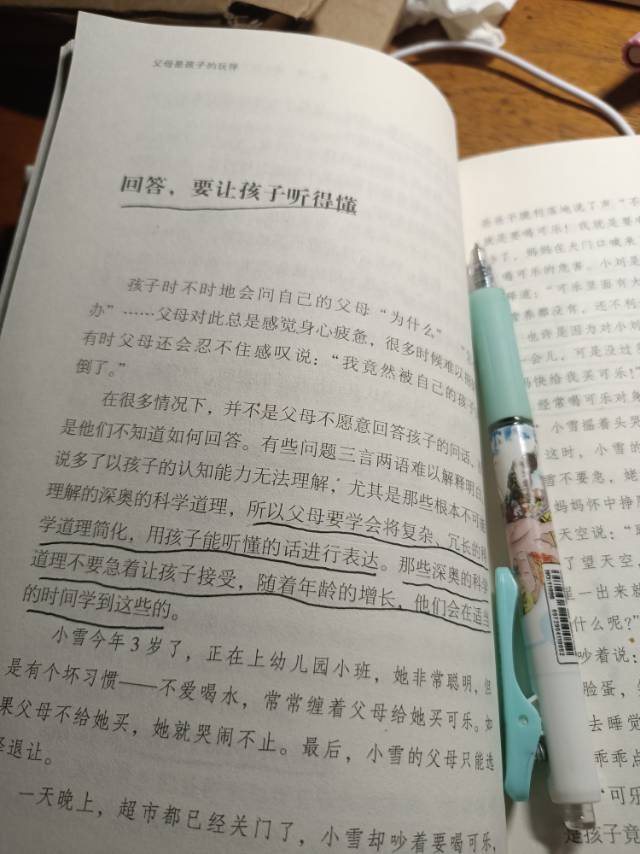 父母是孩子的玩伴
回答，要让孩子听得懂
孩子时不时地会问自己的父母“为什么”
办”……父母对此总是感觉身心疲惫，很多时候难以
有时父母还会忍不住感叹说：“我竟然被自己的孩子
倒了。”
在很多情况下，并不是父母不愿意回答孩子的问话，
是他们不知道如何回答。有些问题三言两语难以解释明白
说多了以孩子的认知能力无法理解，尤其是那些根本不可能
理解的深奥的科学道理，所以父母要学会将复杂、冗长的科
学道理简化，用孩子能听懂的话进行表达。那些深奥的科学
道理不要急着让孩子接受，随着年龄的增长，他们会在适当
的时间学到这些的。
小雪今年3岁了，正在上幼儿园小班，她非常聪明，但
是有个坏习惯——不爱喝水，常常缠着父母给她买可乐。如
果父母不给她买，她就哭闹不止。最后，小雪的父母只能选
择退让。
一天晚上，超市都已经关门了，小雪却吵着要喝可乐，
爸爸干脆利落地说了声：“不
就是要喝可乐！我就是要
了，妈妈在大门口喊来
喝可乐的危害。小刘是
释道：“可乐里面有大
营养都没有，还不
也许是因为对小
一会儿，可是没过
妈快给我买可乐！”
经常喝可乐对身
小雪摇着头哭
这时，小雪的
雪不要急，姥
妈妈怀中挣
天空说：“
了望天空，
是一出来就
什么呢？”
吵着说：
脸蛋，
去睡觉
乖乖点
“可乐
是孩子竟